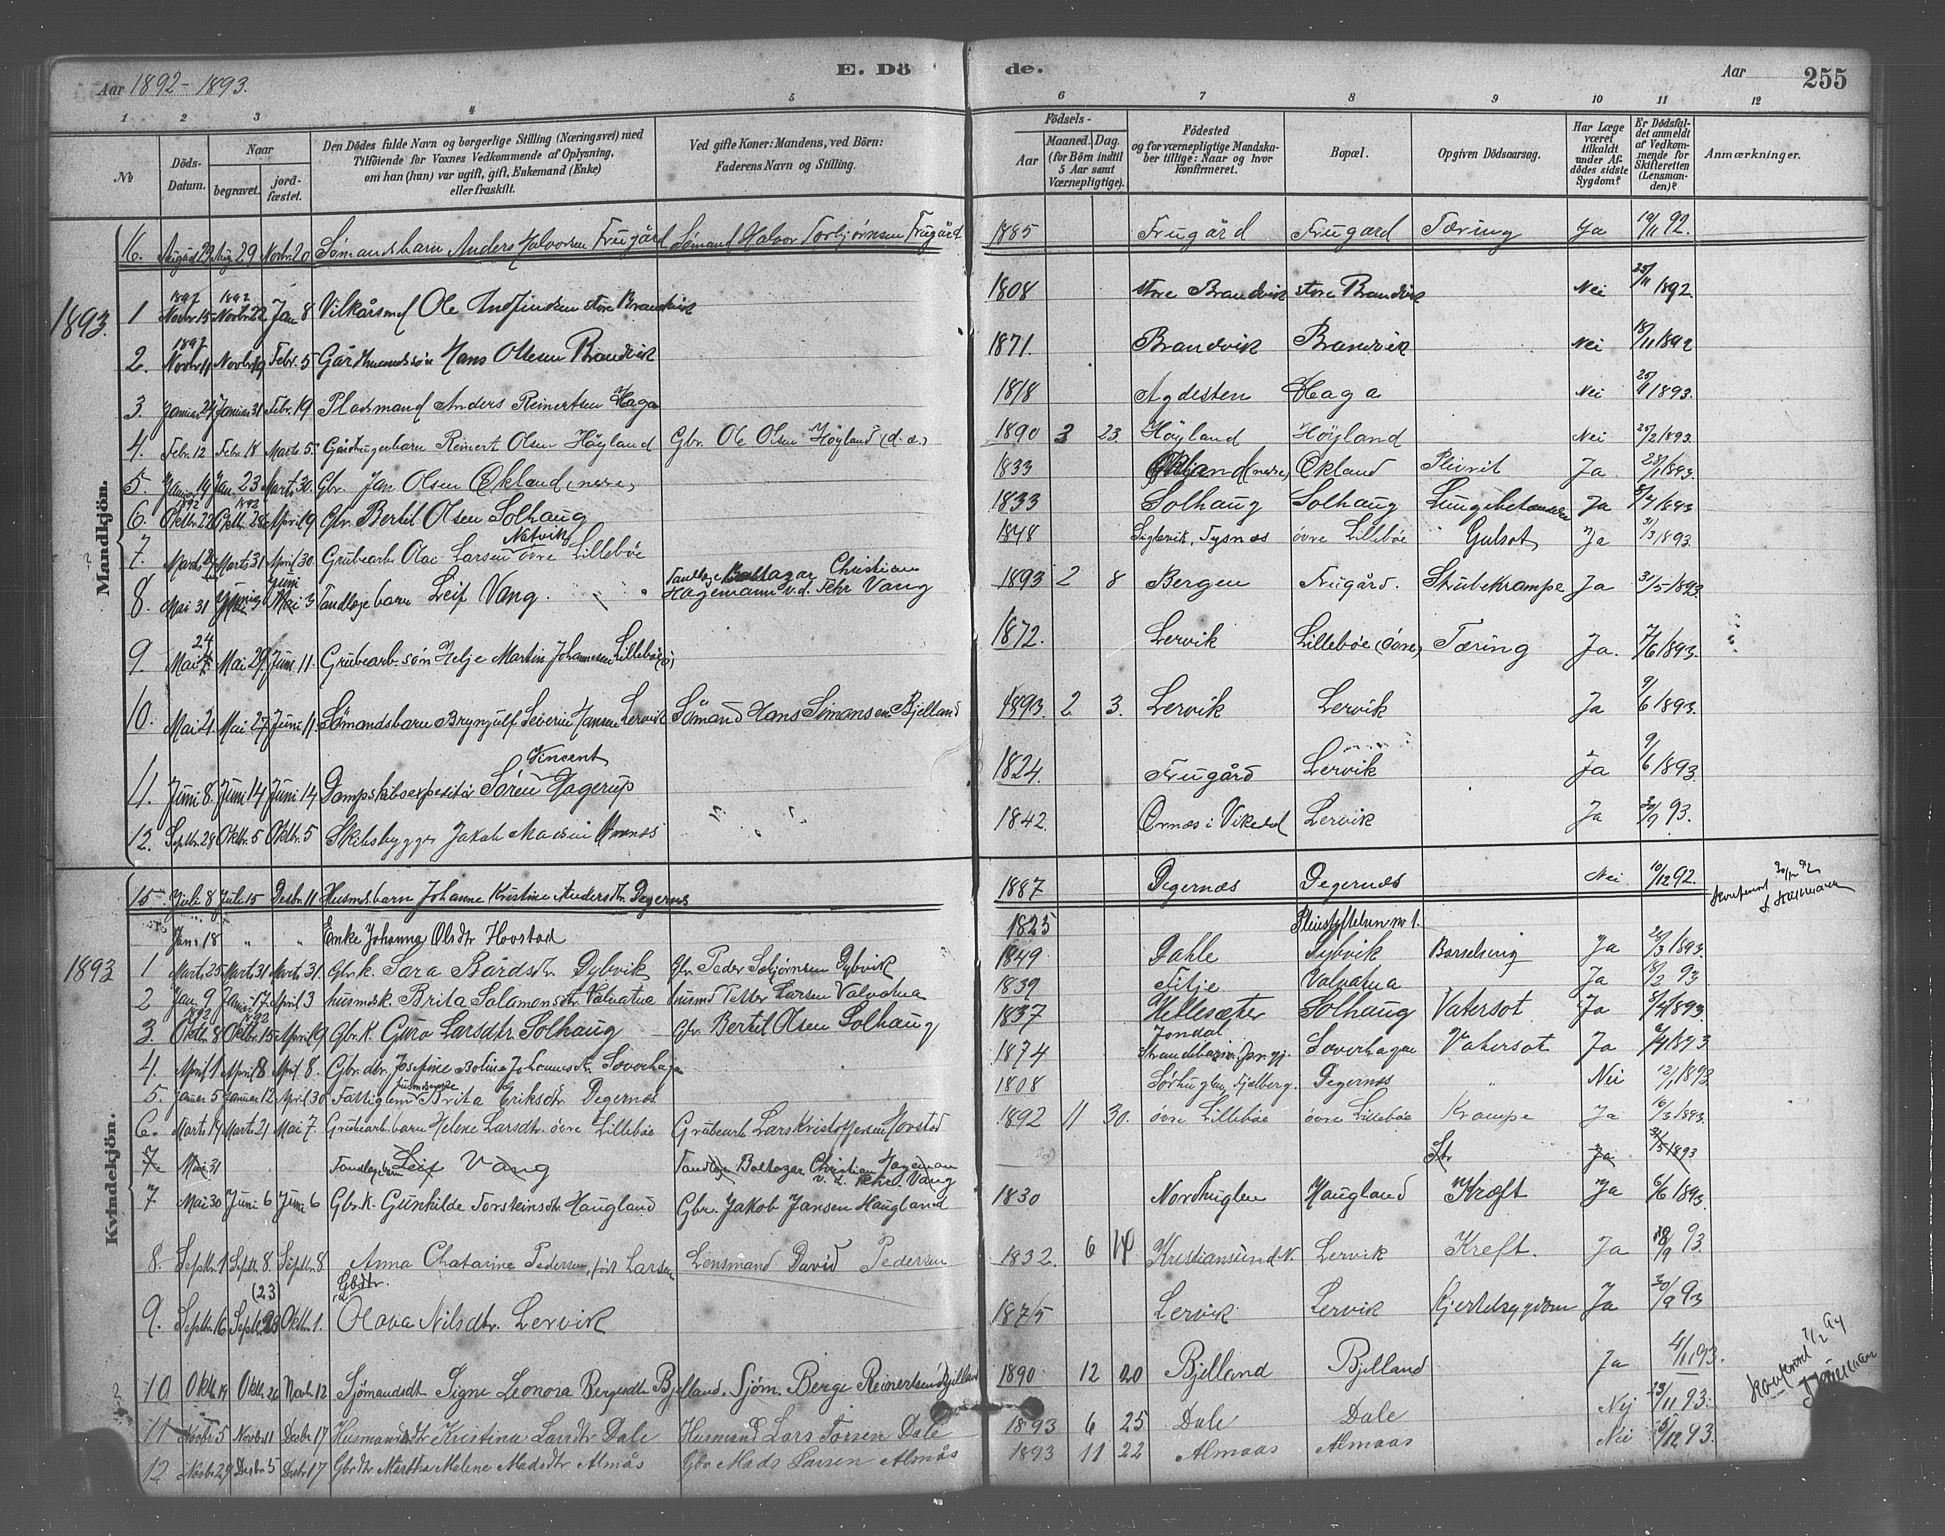 Aar 1892-1893. E. Dö de. Aar 255
1 2 3 4 5 6 7 8 9 10 11 12
№ Döds-Datum. Naar begravet. jordfæstet. Den Dödes fulde Navn og borgerlige Stilling (Næringsvei) med Tilföiende for Voxnes Vedkommende af Oplysning, om han (hun) var ugift, gift, Enkemand (Enke) eller fraskilt. Ved gifte Koner: Mandens, ved Börn: Faderens Navn og Stilling. Födsels- Aar Maaned. Dag. (for Börn indtil 5 Aar samt Værnepligtige). Födested og for værnepligtige Mandskaber tillige: Naar og hvor konfirmeret. Bopæl. Opgiven Dödsaarsag. Har Læge været tilkaldt under Afdödes sidste Sygdom? Er Dödsfaldet anmeldt af Vedkommende for Skifteretten (Lensmanden)? Anmærkninger.
Mandkjön.
16. August 29 Aug 29 Novbr. 20 Sömandsbarn Anders Halvorsen Frugård Sömand Halvor Torbjørnsen Frugård 1885 Frugård Frugard Tæring Ja 19/11 92.
1893. 1 1892 Novbr 15 1892 Novbr. 22 Jan 8 Vilkårsmd Ole store Brandvik 1808 store Brandvik store Brandvik Nei 25/11 1892
2. 1892 Novbr 11 Novbr 19 Febr. 5 Gårdmandssön Hans Olsen Brandvik 1871. Brandvik Brandvik Nei 18/11 1892
3. Januar 24 Januar 31 Febr. 19 Pladsmand Anders Reinertsen Haga 1818 Agdesten Haga Nei 25/1 1893.
4. Febr. 12 Febr. 18 Marts 5. Gårdbrugerbarn Reinert Olsen Höyland Gbr. Ole Olsen Höyland (d.æ.) 1890 3 23. Höyland Höyland Nei 20/2 1893.
5. Januar 14 Jan. 23 Marts 30. Gbr. Jan Olsen Økland (nere) 1833 Økland (nere) Økland Plevrit Ja 28/1 1893.
6. 1892 Oktbr. 22 1892 Oktbr. 28 April 9 Gbr. Bertil Olsen Solhaug 1833 Solhaug Solhaug Lungebetændelse Ja 8/4 1893
7. Marts 24 Marts 31 April 30. Grubearb. Olai Larsen Natvik övre Lillebøe 1848 Tysnes övre Lillebøe Gulsot Ja 31/3 1893
8. Mai 31 Juni 3 Juni 3 Tandlægebarn Leif Vang. Tandlæge Baltazar Christian Hagemann v.d. Fehr Vang 1893 2 8 Bergen Frugård. Strubekrampe Ja 31/5 1893.
9. Mai 24 Mai 29 Juni 11. Grubearb. sön Helje Martin Johannesen Lillebøe (ö) 1872. Lervik Lillebøe (övre) Tæring Ja. 7/6 1893.
10. Mai 21. Mai 27 Juni 11 Sömandsbarn Brynjulf Severin Hansen Lervik Sömand Hans Simonsen Bjelland 1893. 2. 3. Lervik Lervik Ja 9/6 1893.
11. Juni 8. Juni 14 Juni 14 Dampskibsexpeditör Sören Vincent Hagerup 1824. Frugård Lervik Ja 9/6 1893
12. Septbr. 28 Oktbr. 5 Oktbr. 5 Skibsbygger Jakob Madsen Ornæs 1842. Ornæs i Vikedal Lervik Ja 30/9 93.
Kvindekjön.
15 Juli 8 Juli 15 Desbr. 11 Husmdsbarn Johanne Kristine Andersdtr. Degernes 1887 Degernæs Degernæs Nei 10/12 92.
Jan. 18 " " Enke Johanna Olsdtr Hovstad 1825 Pleiestiftelsen nr 1.
1893 1 Marts 25 Marts 31 Marts 31. Gbr.k. Sara Bårdsdtr. Dybvik Gbr Peder Dybvik 1849 Dahle Dybvik Barselseng Ja 28/3 1893.
2 Jan. 9 Januar 17 April 3 husmdsk. Brita Salamonsdtr. Valvatna husmd Petter Larsen Valvatna 1839 Fitje Valvatna Ja 8/2 93
3. 1892 Oktbr. 8 1892 Oktbr. 15 April 9 Gbr.k. Guro Larsdtr. Solhaug Gbr. Bertil Olsen Solhaug 1837 Hellesæter Solhaug Vatersot Ja 8/4 1893.
4. April 1 April 8 April 8. Gbr.dtr. Josefine Bolina Johannesdtr. Soverhagen 1874 Jondal Strandebarm Prgj. Soverhagen Vatersot Ja 6/4 1893
5. Januar 5 Januar 12 April 30 Fattiglem Brita Eriksdtr. Degernæs 1808 Sörhuglen, Fjelberg. Degernæs " Nei 12/1 1893
6. Marts 14 Marts 21 Mai 7. Grubearb.barn Helene Larsdtr. övre Lillebøe Grubearb Lars Kristoffersen Hovstad 1892 11 30. övre Lillebøe övre Lillebøe Krampe Ja 16/3 1893.
7 Mai 31 Tandlægebarn Leif Vang Tandlæge Baltazar Christian Hageman v. d. Fehr Vang Str Ja 31/5 1893
7 Mai 30 Juni 6 Juni 6 Gbr.k. Gunhilde Torsteinsdtr Haugland Gbr. Jakob Jansen Haugland 1830 Nordhuglen Haugland Kræft Ja 6/6 1893.
8. Septbr. 1 Septbr. 8. Septbr. 8 Anna Chatarine Pedersen, föd Larsen Lensmand David Pedersen 1832. 6 Kristiansund N. Lervik Kreft. Ja 18/9 93
9. Septbr. 16 Septbr. 23 (23) Oktbr. 1. Gbdtr. Olava Nilsdtr. Lervik 1875 Lervik Lervik Hjertesygdom Ja 30/9 93
10 Oktbr. 19 Oktbr. 26 Novbr. 12 Sjömandsdt Signe Leonora Bergesdtr Bjelland. Sjöm. Berge Reinertsen Bjelland 1890 12 20 Bjelland Bjelland Ja 4/11 93.
11 Novbr 5 Novbr. 11 Desbr. 17 Husmandsdtr Kristina Larsdtr Dale Husmand Lars Torsen Dale 1893 6 25 Dale Dale Nej 13/11 93.
12 Novbr. 29 Desbr. 5 Desbr 17 Gbr.dtr Martha Malene Madsdtr Almås Gbr. Mads Larsen Almås 1893 11 22 Almaas Almaas Nei 5/12 93.